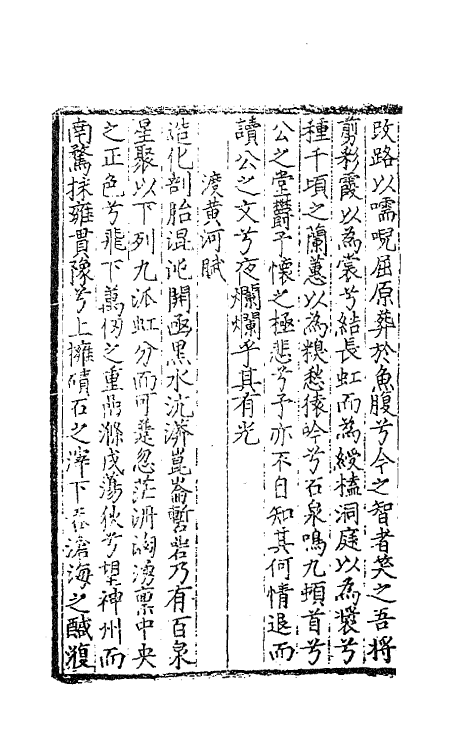 改路以嚅唲屈原葬於魚腹兮今之智者笑之吾將
剪彩霞以為裳兮結長虹而為綬榼洞庭以為兮
種千頃之蘭蕙以為糗愁猿吟兮石泉鳴九頓首兮
公之堂欝予懷之極悲兮予亦不自知其何情退而
讀公之文兮夜爛爛乎其有光
渡黄河賦
造化剖胎混沌開函黑水沇濟崑崙暫岩乃有百泉
星聚以下列九派虹分而可忽茫洶湧禀中央
之正色兮飛下萬仞之重嵓滌戎蕩狄兮望神州而
南騖抹雍貫豫兮上擁磧石之滓下吞滄海之醎